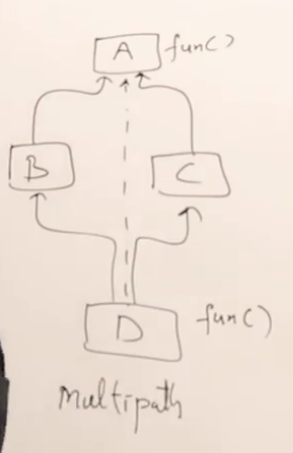 A func)
B C
D func)
Multipath